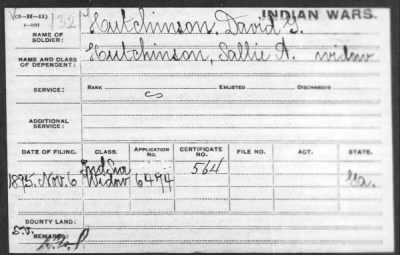 INDIAN WARS.
32
NAME OF SOLDIER: Hutchinson, David G.
NAME AND CLASS OF DEPENDENT: Hutchinson, Sallie A. widow
SERVICE: RANK ENLISTED DISCHARGED
ADDITIONAL SERVICE:
DATE OF FILING. CLASS. APPLICATION No. CERTIFICATE NO. FILE NO. ACT. STATE.
1895, Nov. 6 Indian Widow 6474 564 Ga.
BOUNTY LAND:
REMARKS: